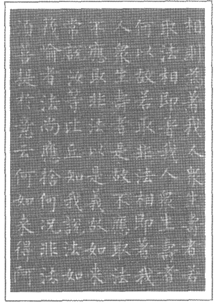 相則為著我人眾生壽者若
取法相即著我人眾生壽者
何以故若取非法相即著我
人眾生壽者是故不應取法
不應取非法以是義故如來
常說汝等比丘知我說法如
筏喻者法尚應捨何況非法
須菩提於意云何如來得阿